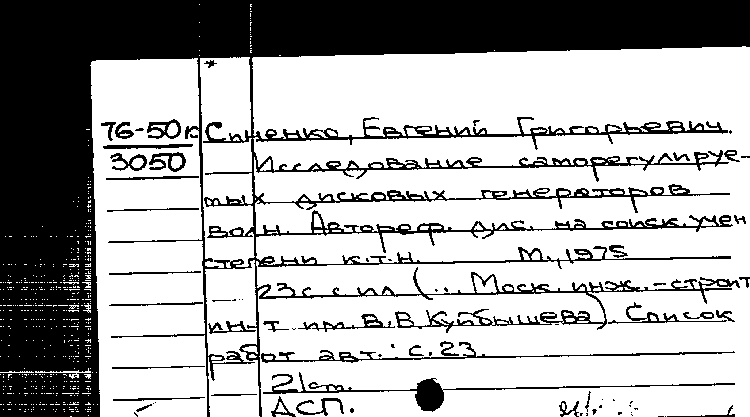 76-50к Синенко, Евгений Григорьевич.
3050 Исследование саморегулируе-
мых дисковых генераторов
волн. Автореф. дис. на соиск. учен
степени к.т.н. М., 1975
23с с ил (... Моск. инж.-строит
ин-т им. В.В. Куйбышева). Список
работ авт.: с. 23.
21см.
ДСП.